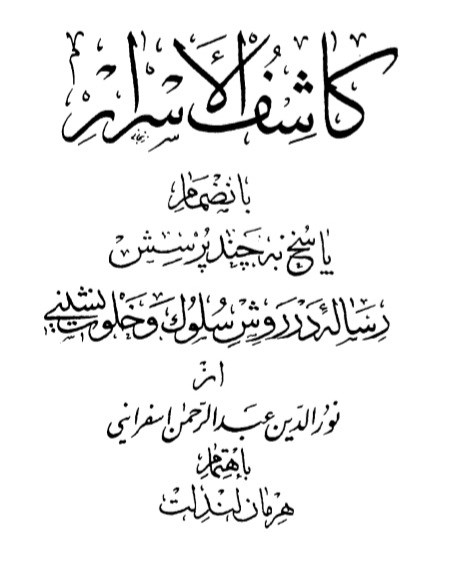 کاشِفُ الأسرار
بانضمام
پاسُخ به چَند پُرسِش
رِسالهٔ دَر رَوِشِ سُلوُك وَ خَلوَت نشینی
از
نورُالدّین عبدالرّحمٰن اسفراینی
بإهتِمام
هِرمان لندُلت